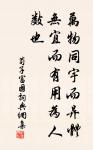 萬物同宇而异體
無宜而有用爲人
數也
荀子富國詞典網集